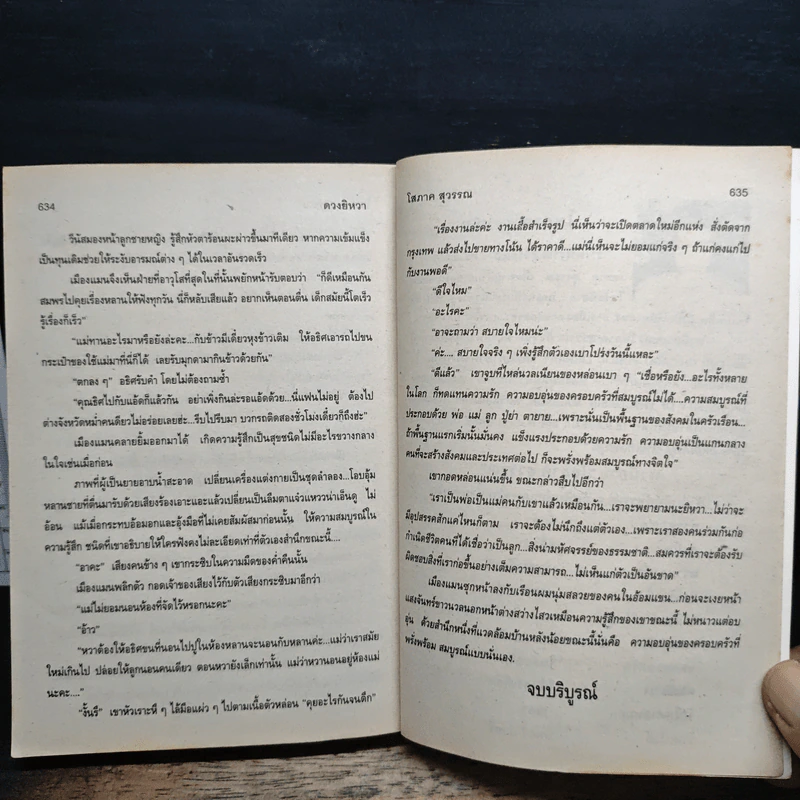 634
ดวงยิหวา
วีนัสมองหน้าลูกชายหญิง รู้สึกหัวตาร้อนผะผ่าวขึ้นมาทีเดียว หากความเข้มแข็ง
เป็นทุนเดิมช่วยให้ระงับอารมณ์ต่าง ๆ ได้ในเวลาอันรวดเร็ว
เมืองแมนจึงเห็นฝ่ายที่อาวุโสที่สุดในที่นั้นพยักหน้ารับตอบว่า "ก็ดีเหมือนกัน
สมพรไปคุยเรื่องหลานให้ฟังทุกวัน นี่ก็หลับเสียแล้ว อยากเห็นตอนตื่น เด็กสมัยนี้โตเร็ว
รู้เรื่องก็เร็ว"
"แม่ทานอะไรมาหรือยังล่ะคะ....กับข้าวมีเดี๋ยวหุงข้าวเติม ให้อธิศเอารถไปขน
กระเป๋าของใช้แม่มาที่นี่ก็ได้ เลยรับมุกดามากินข้าวด้วยกัน"
"ตกลง ๆ" อธิศรับคำ โดยไม่ต้องถามซ้ำ
"คุณธิศไปกับแอ๊ดก็แล้วกัน อย่าเพิ่งกินล่ะรอแอ๊ดด้วย...นี่แฟนไม่อยู่ ต้องไป
ต่างจังหวัดหม่ำคนเดียวไม่อร่อยเลยฮ่ะ...รีบไปรีบมา บวกรถติดสองชั่วโมงเดี๋ยวก็ถึงฮ่ะ"
เมืองแมนคลายยิ้มออกมาได้ เกิดความรู้สึกเป็นสุขชนิดไม่มีอะไรขวางกลาง
ในใจเช่นเมื่อก่อน
ภาพที่ผู้เป็นยายอาบน้ำสะอาด เปลี่ยนเครื่องแต่งกายเป็นชุดลำลอง...โอบอุ้ม
หลานชายที่ตื่นมารับด้วยเสียงร้องเอาะแอะแล้วเปลี่ยนเป็นลืมตาแจ๋วแหววน่าเอ็นดู ไม่
อ้อน แม้เมื่อกระทบอ้อมอกและอุ้งมือที่ไม่เคยสัมผัสมาก่อนนั้น ให้ความสมบูรณ์ใน
ความรู้สึก ชนิดที่เขาอธิบายให้ใครฟังคงไม่ละเอียดเท่าที่ตัวเองสำนึกขณะนี้....
"อาคะ" เสียงคนข้าง ๆ เขากระซิบในความมืดของค่ำคืนนั้น
เมืองแมนพลิกตัว กอดเจ้าของเสียงไว้กับตัวเสียงกระซิบมาอีกว่า
"แม่ไม่ยอมนอนห้องที่จัดไว้หรอกนะคะ"
"อ้าว"
"หวาต้องให้อธิศขนที่นอนไปปูในห้องหลานจะนอนกับหลานค่ะ...แม่ว่าเราสมัย
ใหม่เกินไป ปล่อยให้ลูกนอนคนเดียว ตอนหวายังเล็กเท่านั้น แม่ว่าหวานอนอยู่ห้องแม่
นะคะ...."
"งั้นรึ" เขาหัวเราะหึ ๆ ไล้มือแผ่ว ๆ ไปตามเนื้อตัวหล่อน "คุยอะไรกันจนดึก"
โสภาค สุวรรณ
635
"เรื่องงานล่ะค่ะ งานเสื้อสำเร็จรูป นี่เห็นว่าจะเปิดตลาดใหม่อีกแห่ง สั่งตัดจาก
กรุงเทพ แล้วส่งไปขายทางโน้น ได้ราคาดี...แม่นี่เห็นจะไม่ยอมแก่จริง ๆ ถ้าแก่คงแก่ไป
กับงานพอดี"
"ดีใจไหม"
"อะไรคะ"
"อาจะถามว่า สบายใจไหมน่ะ"
"ค่ะ.... สบายใจจริง ๆ เพิ่งรู้สึกตัวเองเบาโปร่งวันนี้แหละ"
"ดีแล้ว" เขาจูบที่ไหล่นวลเนียนของหล่อนเบา ๆ "เชื่อหรือยัง...อะไรทั้งหลาย
ในโลก ก็ทดแทนความรัก ความอบอุ่นของครอบครัวที่สมบูรณ์ไม่ได้....ความสมบูรณ์ที่
ประกอบด้วย พ่อ แม่ ลูก ปู่ย่า ตายาย...เพราะนั่นเป็นพื้นฐานของสังคมในครัวเรือน...
ถ้าพื้นฐานแรกเริ่มนั้นมั่นคง แข็งแรงประกอบด้วยความรัก ความอบอุ่นเป็นแกนกลาง
คนที่จะสร้างสังคมและประเทศต่อไป ก็จะพรั่งพร้อมสมบูรณ์ทางจิตใจ"
เขากอดหล่อนแน่นขึ้น ขณะกล่าวสืบไปอีกว่า
"เราเป็นพ่อเป็นแม่คนกับเขาแล้วเหมือนกัน...เราจะพยายามนะยิหวา...ไม่ว่าจะ
มีอุปสรรคสักแค่ไหนก็ตาม เราจะต้องไม่นึกถึงแต่ตัวเอง...เพราะเราสองคนร่วมกันก่อ
กำเนิดชีวิตคนที่ได้เชื่อว่าเป็นลูก...สิ่งน่ามหัศจรรย์ของธรรมชาติ...สมควรที่เราจะต้องรับ
ผิดชอบสิ่งที่เราก่อขึ้นอย่างเต็มความสามารถ...ไม่เห็นแก่ตัวเป็นอันขาด"
เมืองแมนซุกหน้าลงกับเรือนผมนุ่มสลวยของคนในอ้อมแขน...ก่อนจะเงยหน้า
แสงจันทร์ขาวนวลนอกหน้าต่างสว่างไสวเหมือนความรู้สึกของเขาขณะนี้ ไม่หนาวแต่อบ
อุ่น ด้วยสำนึกหนึ่งที่แวดล้อมบ้านหลังน้อยขณะนี้นั่นคือ ความอบอุ่นของครอบครัวที่
พรั่งพร้อม สมบูรณ์แบบนั่นเอง.
จบบริบูรณ์